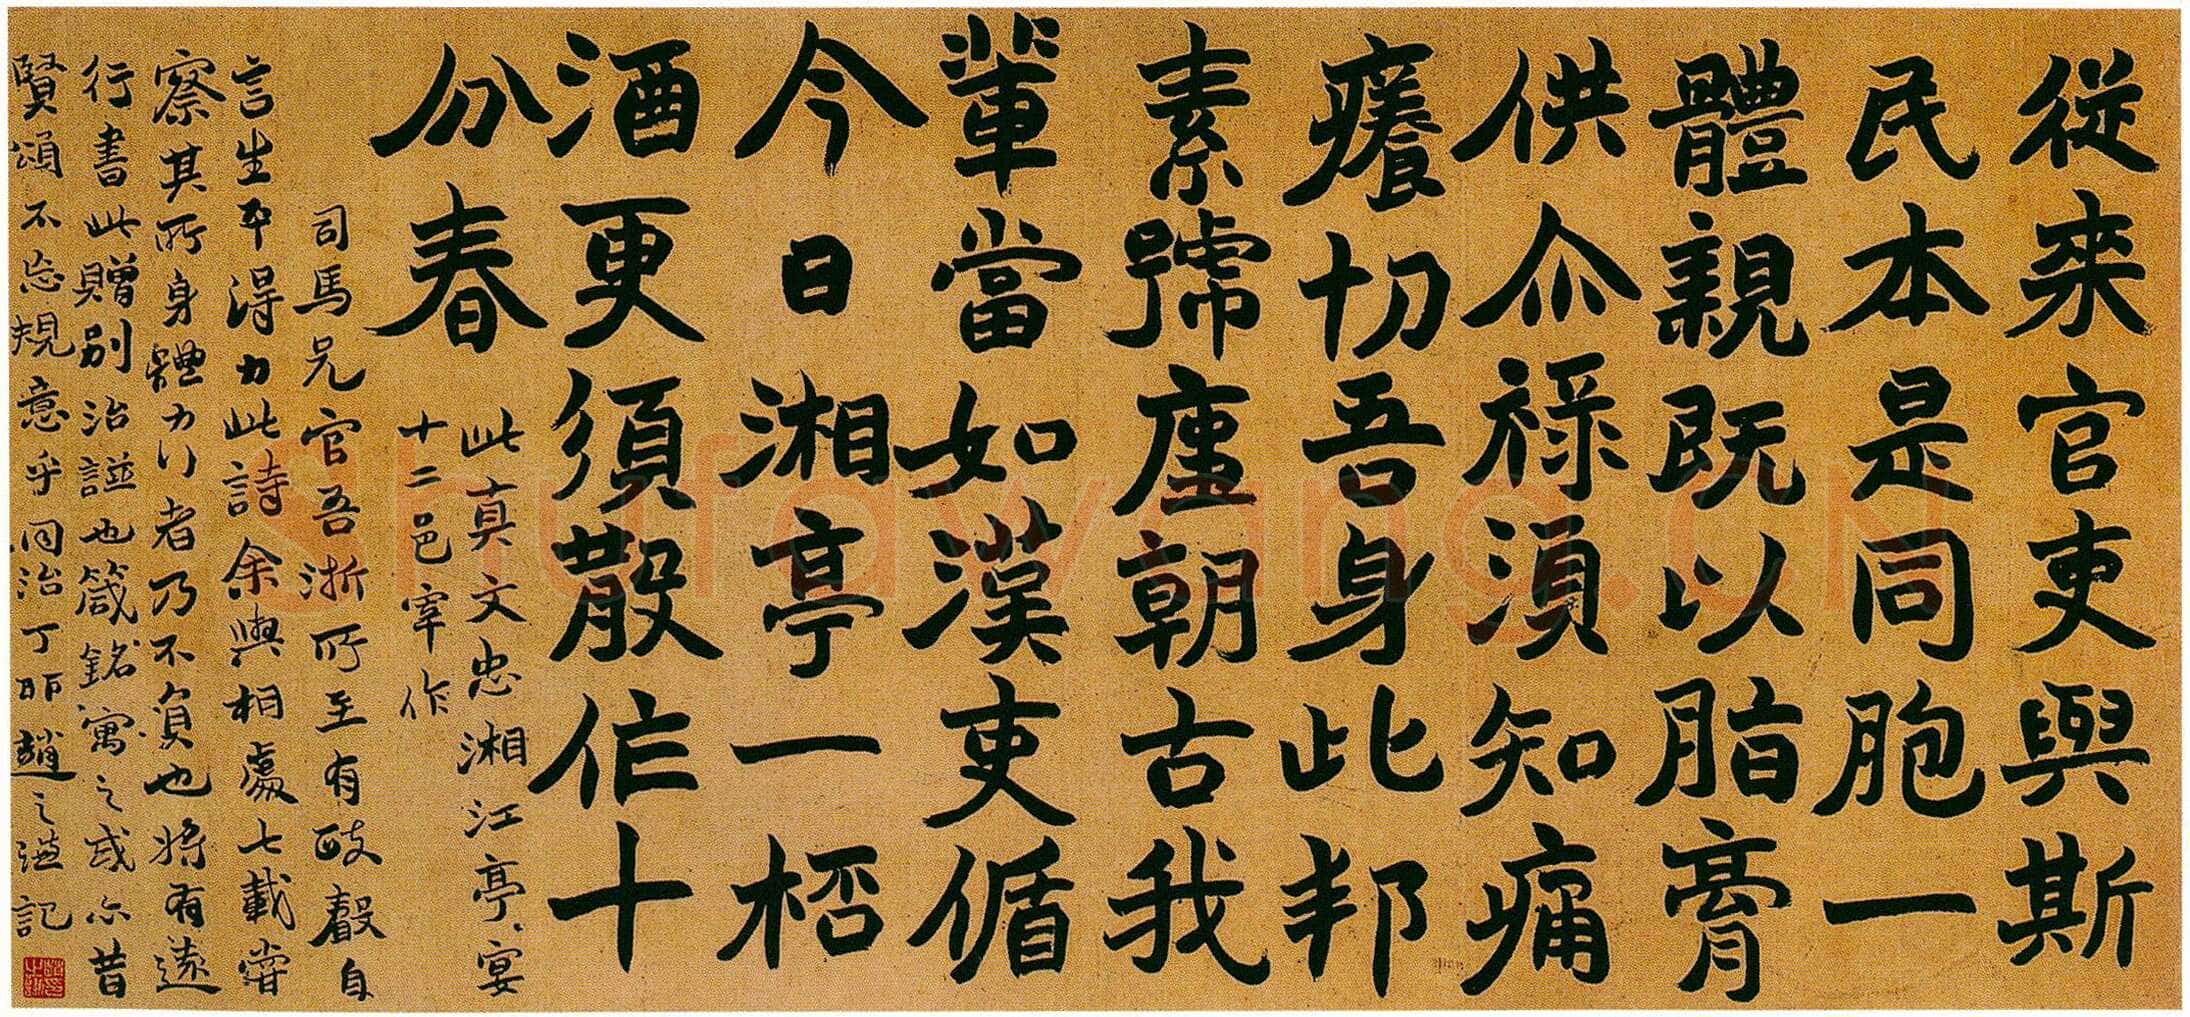 從來官吏與斯
民本是同胞一
體親既以脂膏
供尒祿須知痛
癢切吾身此邦
素號唐朝古我
輩當如漢吏循
今日湘亭一桮
酒更須散作十
分春
此真文忠湘江亭宴
十二邑宰作
司馬兄官吾浙所至有政聲自
言生平得力此詩余與相處七載嘗
察其所身體力行者乃不負也將有遠
行書此贈別治譜也箴銘寓之或亦昔
賢頌不忘規意乎同治丁卯趙之謙記
Shufawang.CN